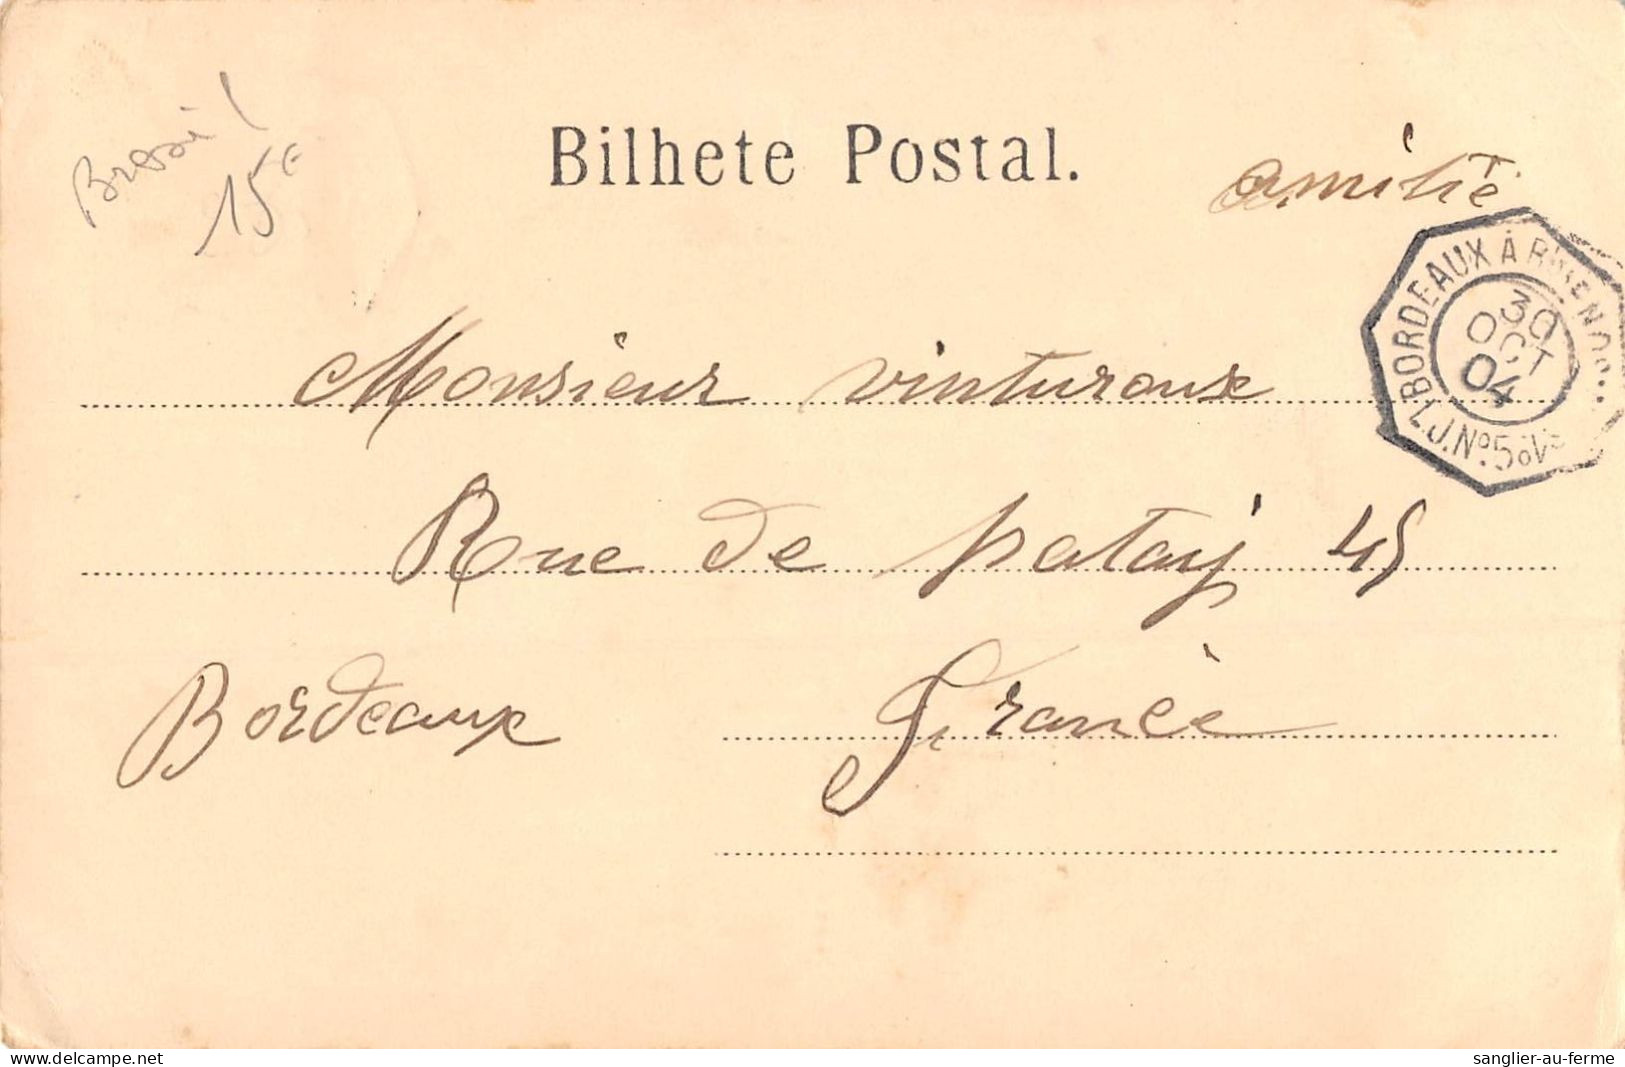 Bresil
15€
Bilhete Postal.
amitié
BORDEAUX À BUENOS
L.J. Nº 5
30
OCT
04
Monsieur vinturoux
Rue de patay 45
Bordeaux France
delcampe.net
sanglier-au-ferme